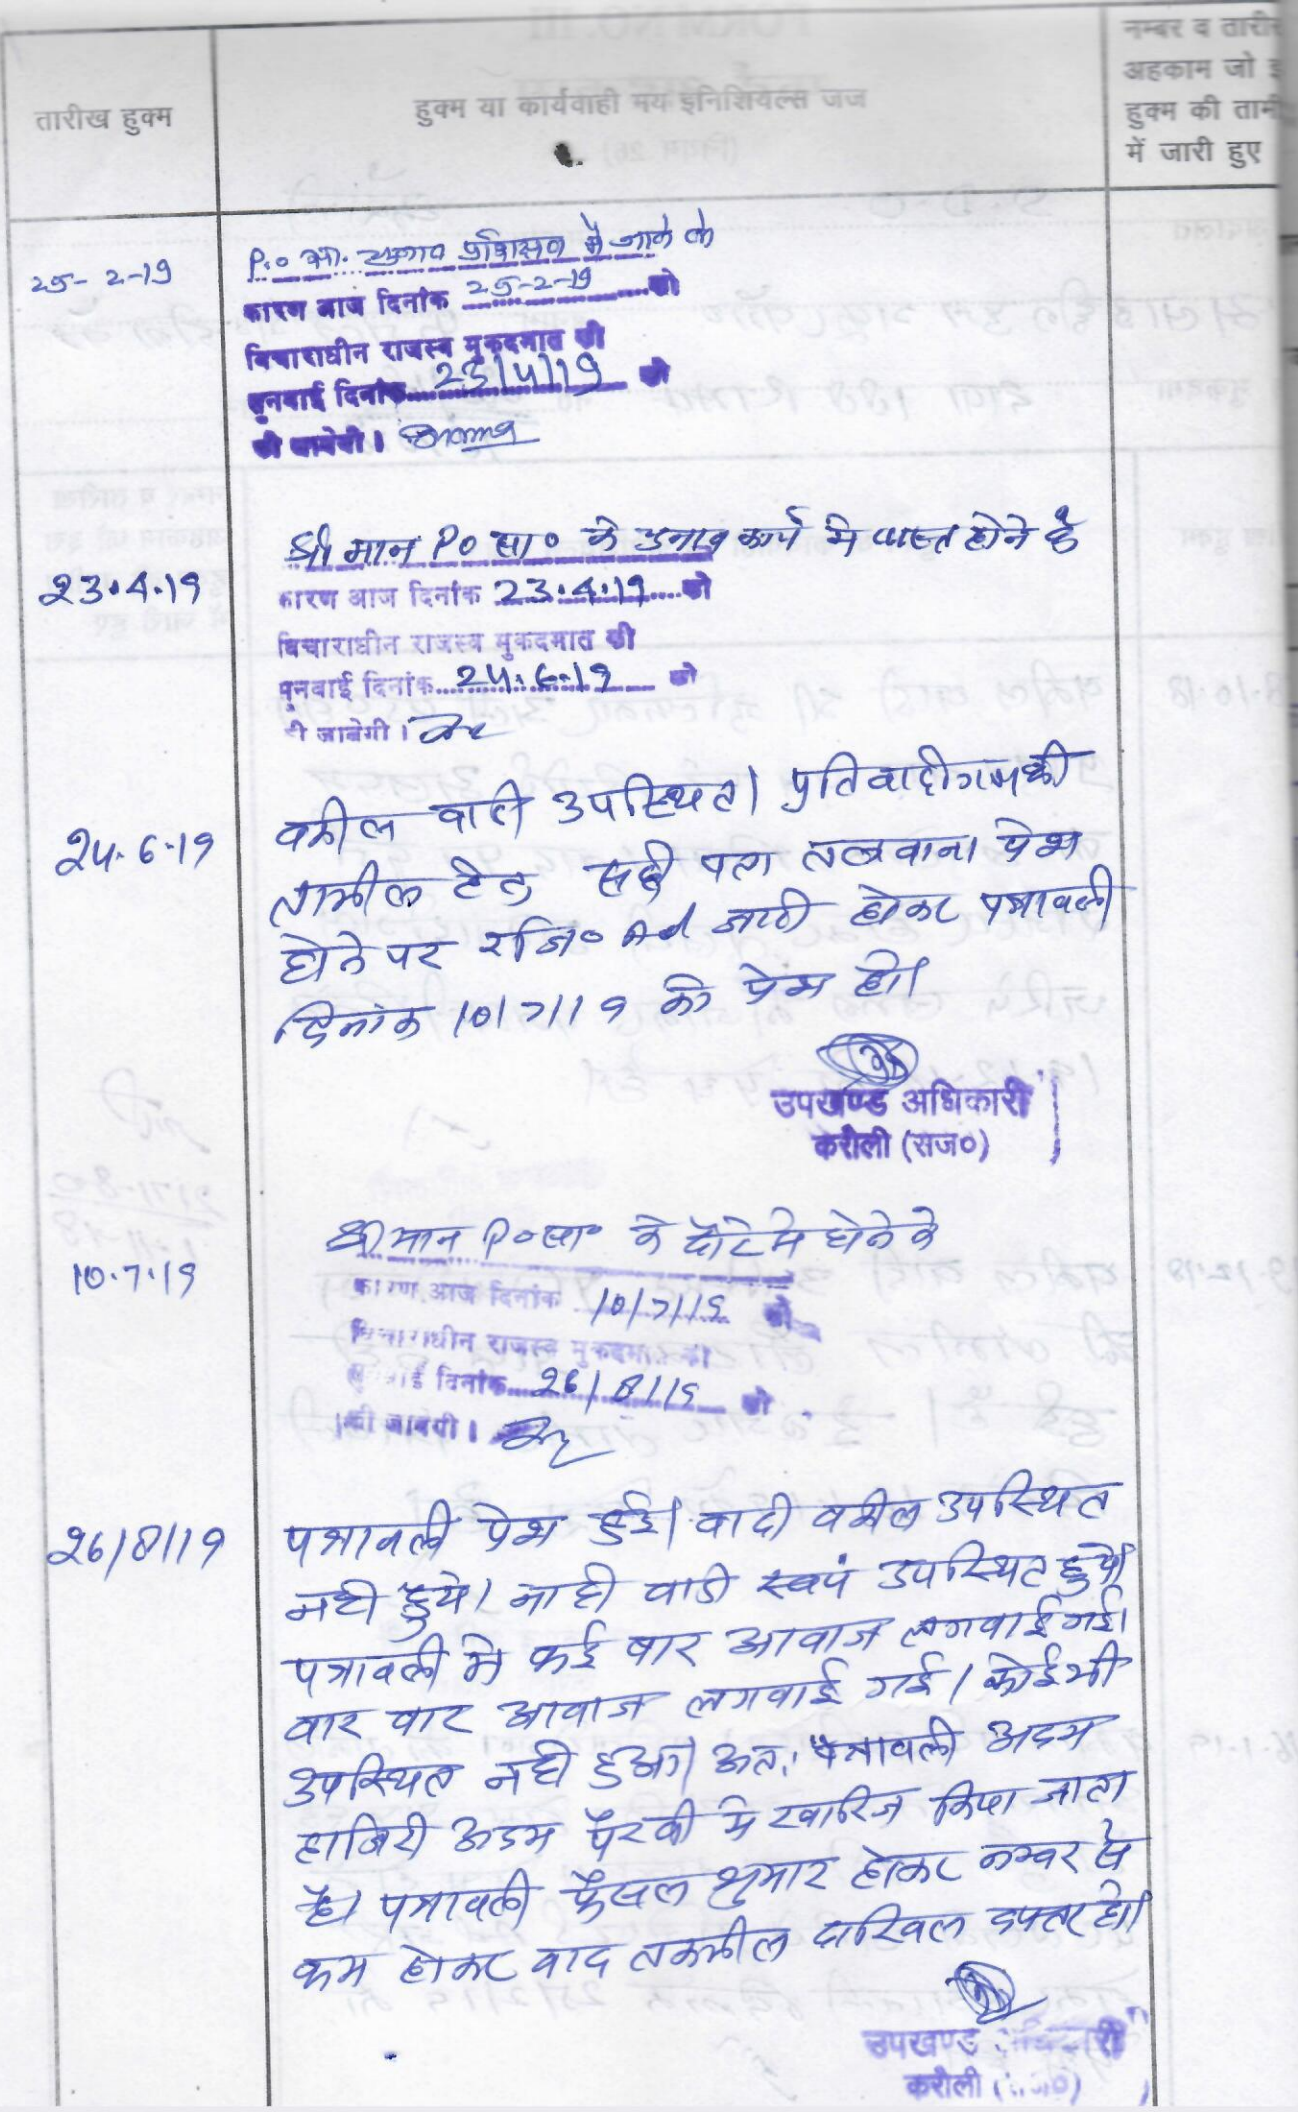 तारीख हुक्म
हुक्म या कार्यवाही मय इनिशियल्स जज
नम्बर व तारीख
अहकाम जो इ
हुक्म की तामी
में जारी हुए
25-2-19
P.० सा. चुनाव प्रशिक्षण में जाने के
कारण आज दिनांक 25-2-19 को
विचाराधीन राजस्व मुकदमात की
सुनवाई दिनांक 23/4/19 को
की जावेगी।
23.4.19
श्री मान P० सा० के चुनाव कार्य मे व्यस्त होने के
कारण आज दिनांक 23.4.19 को
विचाराधीन राजस्व मुकदमात की
सुनवाई दिनांक 24.6.19 को
की जावेगी।
24.6.19
वकील वादी उपस्थित। प्रतिवादीगण की
तामील हेतु सही पता तलवाना पेश
होने पर रजि० Ad जारी होकर पत्रावली
दिनांक 10/7/19 को पेश हो।
उपखण्ड अधिकारी
करौली (राज०)
10.7.19
श्री मान P०सा० के दौरे मे होने के
कारण आज दिनांक 10/7/19 को
विचाराधीन राजस्व मुकदमात की
सुनवाई दिनांक 26/8/19 को
की जावेगी।
26/8/19
पत्रावली पेश हुई। वादी वकील उपस्थित
नही हुये। ना ही वादी स्वयं उपस्थित हुये।
पत्रावली मे कई बार आवाज लगवाई गई।
बार बार आवाज लगवाई गई। कोई भी
उपस्थित नही हुआ। अतः पत्रावली अदम
हाजिरी अदम पैरवी मे खारिज किया जाता
है। पत्रावली फैसल शुमार होकर नम्बर से
कम होकर वाद तकमील दाखिल दफ्तर हो।
उपखण्ड अधिकारी
करौली (राज०)